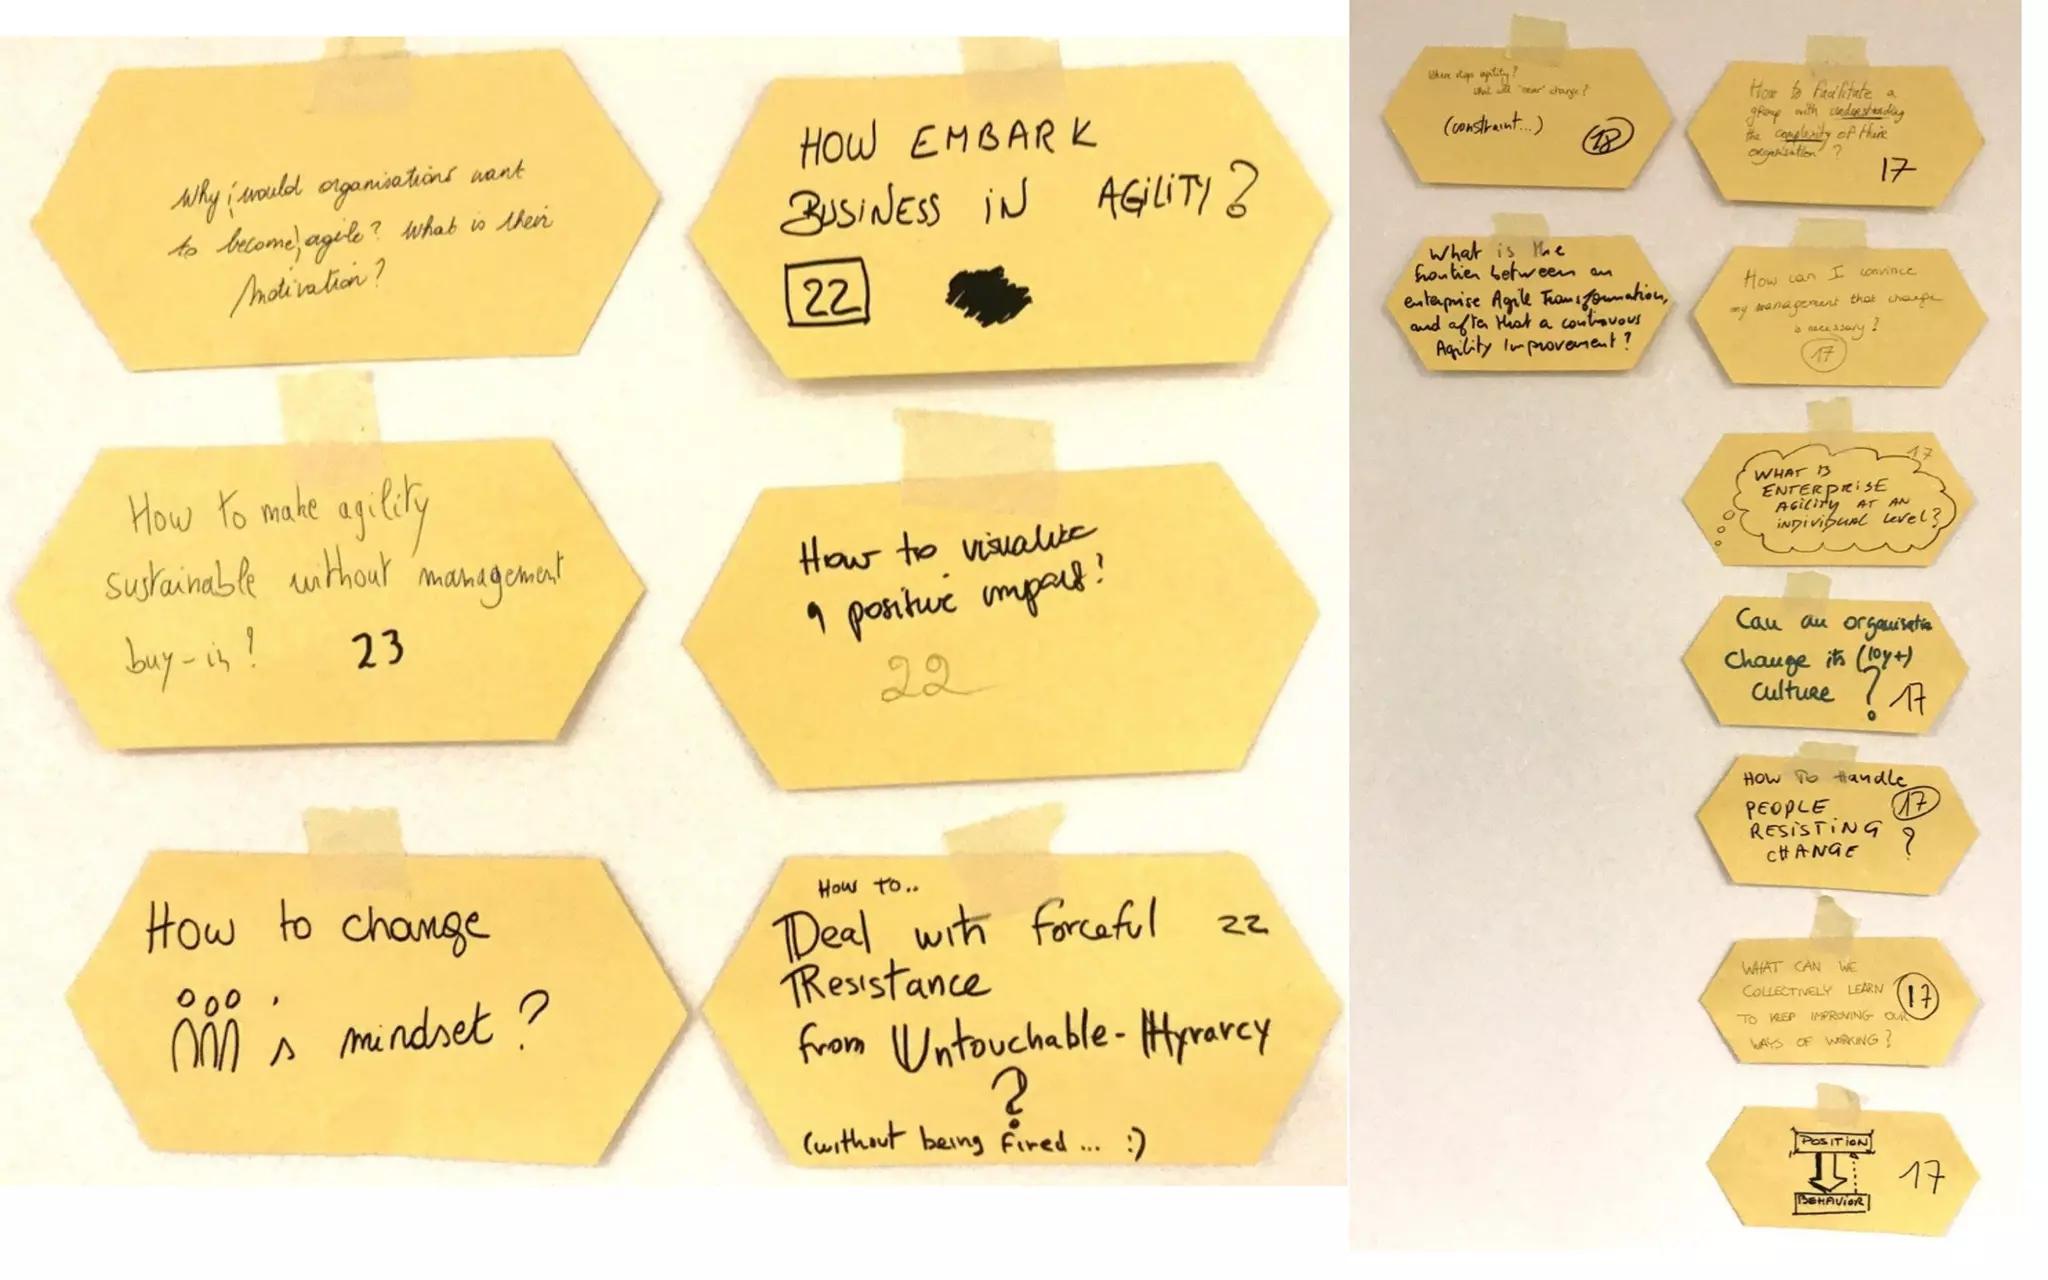 Why would organisations want
to become agile? What is their
motivation?
HOW EMBARK
BUSINESS IN AGILITY?
22
How to make agility
sustainable without management
buy-in? 23
How to visualize
a positive impact?
22
How to change
's mindset?
How to..
Deal with Forceful 22
Resistance
from Untouchable-Hyrarcy
?
(without being fired... :)
Where stops agility?
What will "never" change?
(constraint...) 18
What is the
frontier between an
enterprise Agile Transformation,
and after that a continuous
Agility Improvement?
How to facilitate a
group with understanding
the complexity of their
organisation?
17
How can I convince
my management that change
is necessary?
17
17
WHAT IS
ENTERPRISE
AGILITY AT AN
INDIVIDUAL LEVEL?
Can an organisatio
change its (10y+)
culture ? 17
HOW TO HANDLE
PEOPLE 17
RESISTING
CHANGE ?
WHAT CAN WE
COLLECTIVELY LEARN 17
TO KEEP IMPROVING OUR
WAYS OF WORKING?
POSITION
17
BEHAVIOR